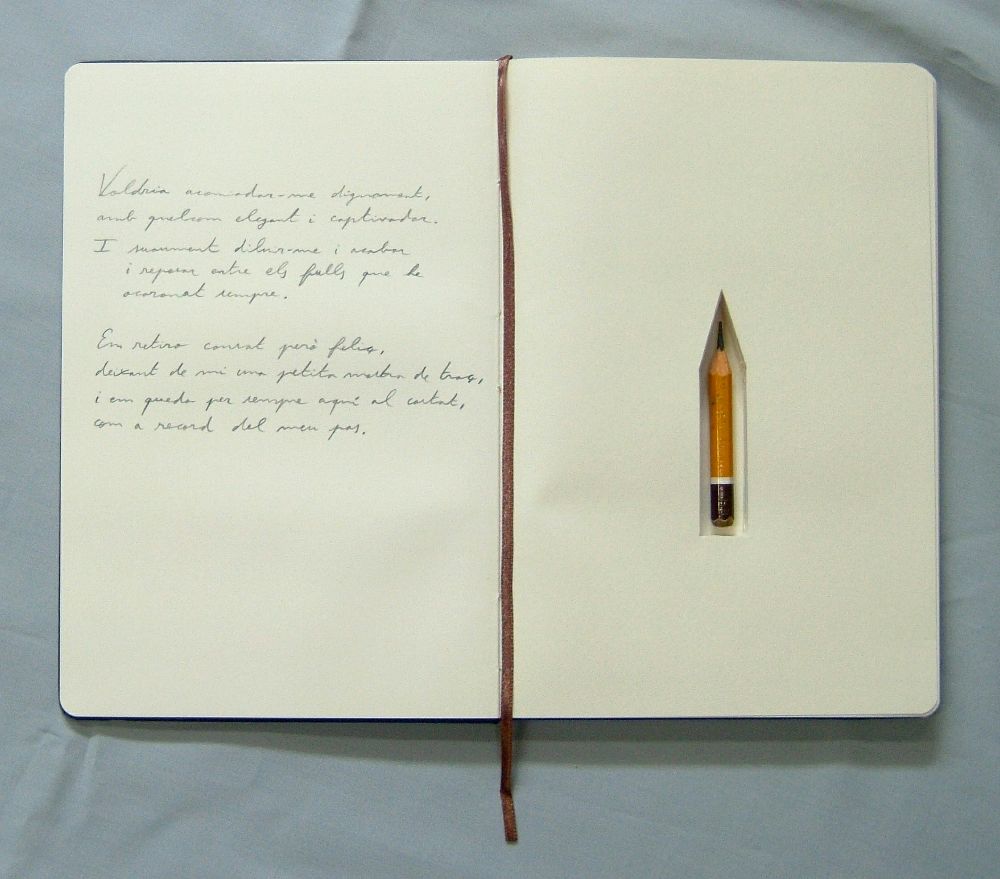 Voldria acomiadar-me dignament,
amb quelcom elegant i captivador.
I suaument diluir-me i acabar
i reposar entre els fulls que he
acaronat sempre.
Em retiro cansat però feliç,
deixant de mi una petita mostra de traç,
i em quedo per sempre aquí al costat,
com a record del meu pas.